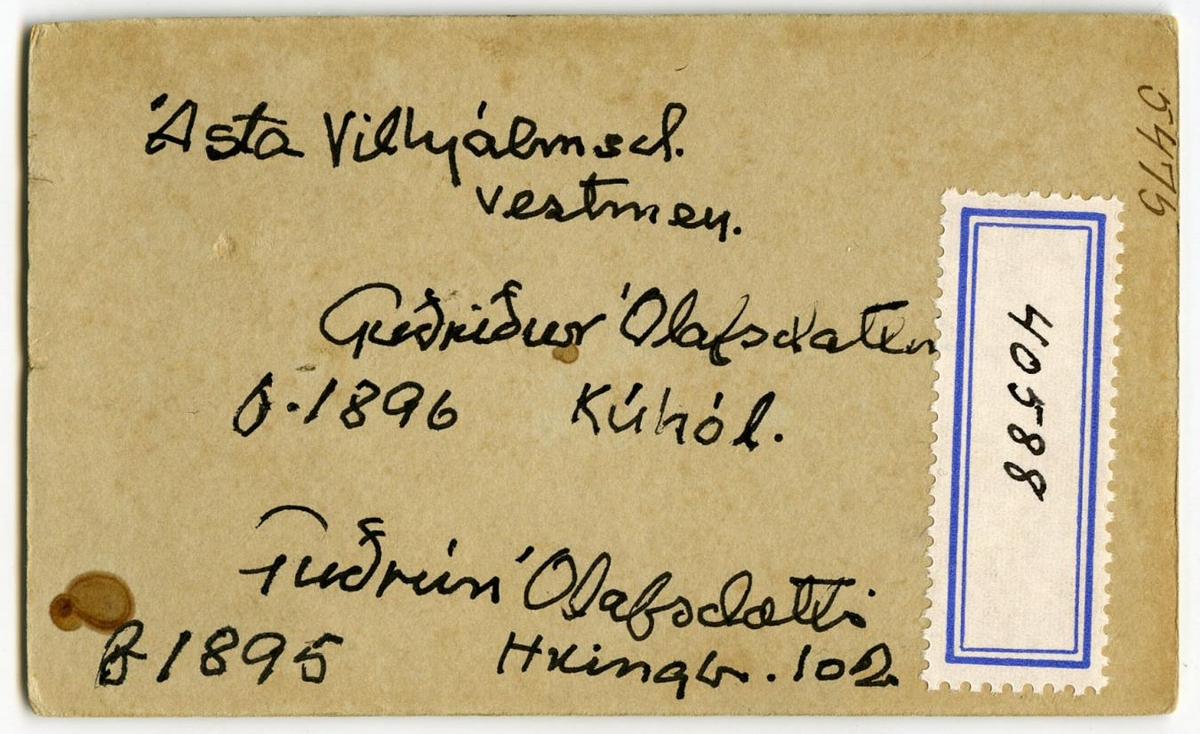 Ásta Vilhjálmsd.
Vestmey.
Guðríður Ólafsdóttir
f. 1896 Kúhól.
Guðrún Ólafsdótti
f 1895 Hringbr. 102
40588
5475